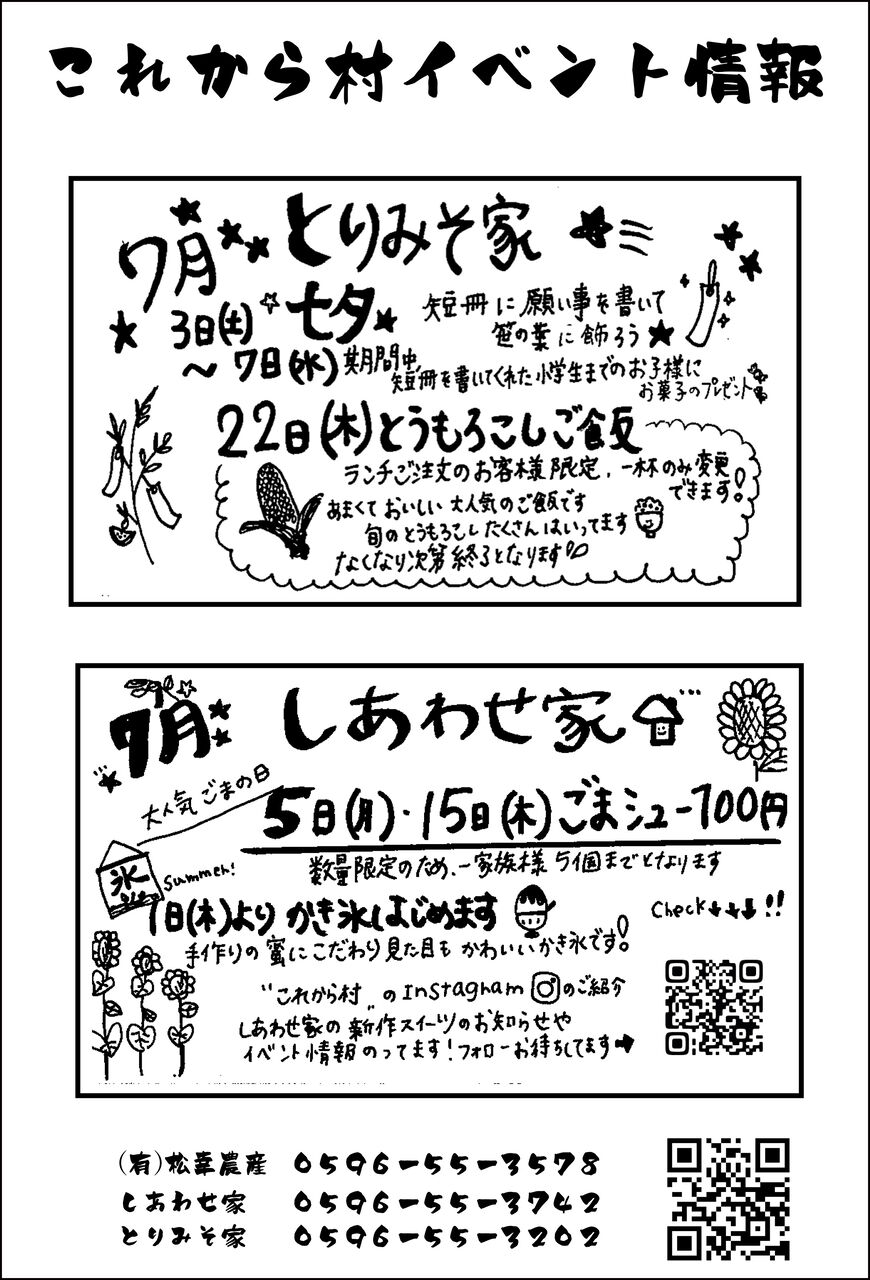 これから村イベント情報
7月 とりみそ家
3日(土) 七夕
～7日(水) 期間中
短冊に願い事を書いて
笹の葉に飾ろう
短冊を書いてくれた小学生までのお子様に
お菓子のプレゼント
22日(木)とうもろこしご飯
ランチご注文のお客様限定、一杯のみ変更
できます!
あまくておいしい大人気のご飯です
旬のとうもろこしたくさんはいってます
なくなり次第終了となります
7月 しあわせ家
大人気ごまの日
5日(月)・15日(木)ごまシュー100円
数量限定のため、一家族様5個までとなります
氷
Summer!
1日(木)より かき氷はじめます
Check↓↓↓!!
手作りの蜜にこだわり見た目もかわいいかき氷です!
"これから村"のInstagramのご紹介
しあわせ家の新作スイーツのお知らせや
イベント情報のってます!フォローお待ちしてます→
(有)松幸農産 0596-55-3578
しあわせ家 0596-55-3742
とりみそ家 0596-55-3202